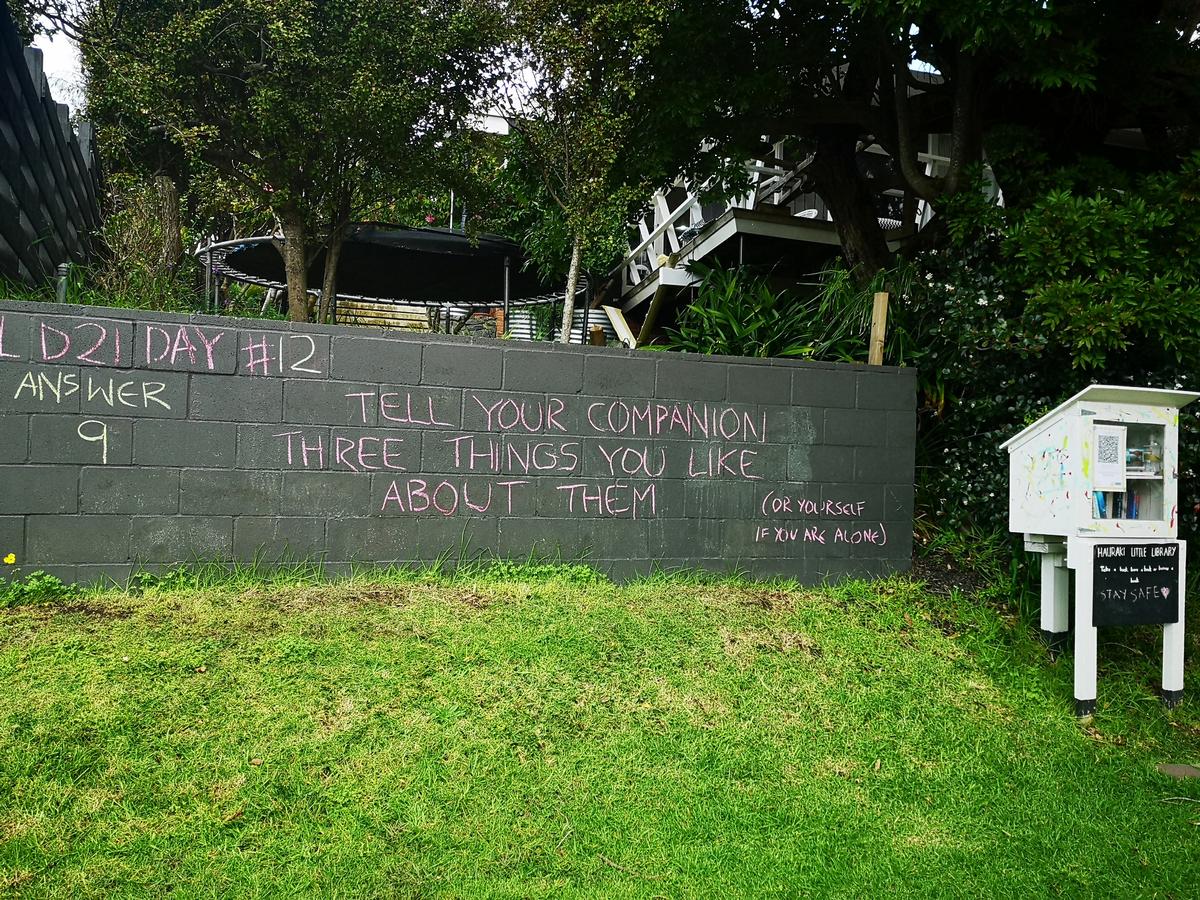 LD21 DAY #12
ANSWER
9
TELL YOUR COMPANION
THREE THINGS YOU LIKE
ABOUT THEM
(OR YOURSELF
IF YOU ARE ALONE)
HAURAKI LITTLE LIBRARY
Take a book
book
STAY SAFE